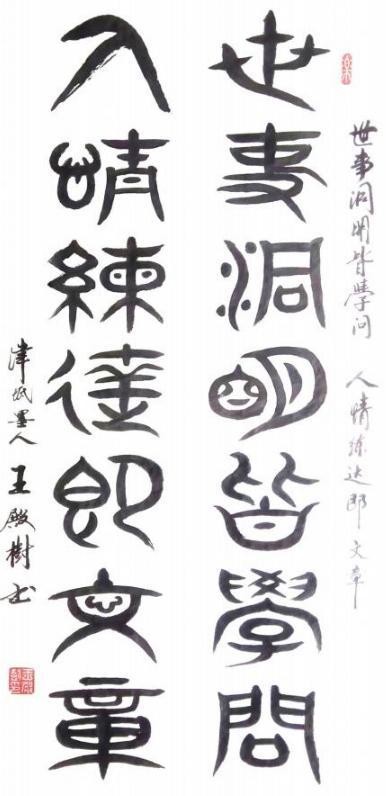 世事洞明皆学问 人情练达即文章
世事洞明皆學問
人情練達即文章
津城墨人 王殿樹书